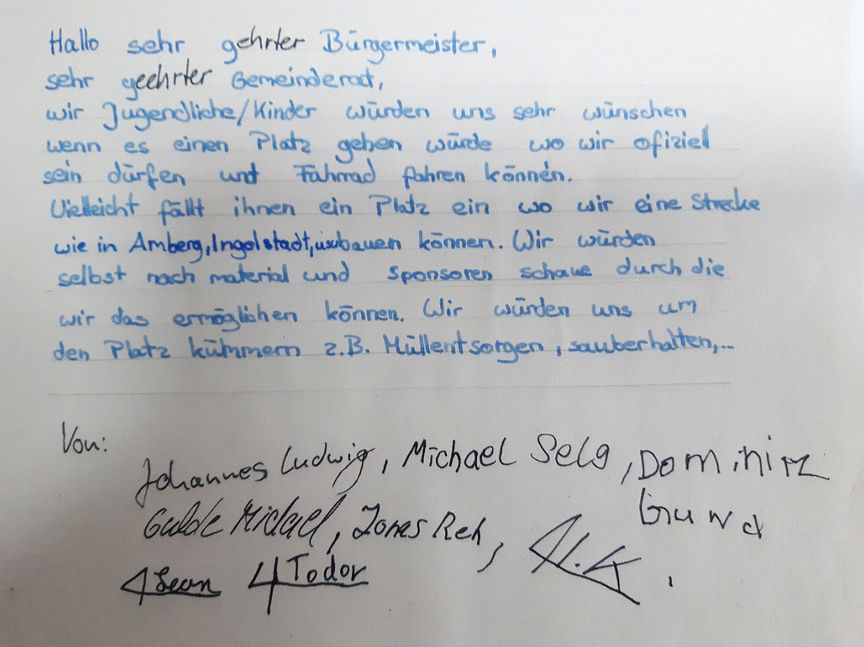 Hallo sehr gehrter Bürgermeister,
sehr geehrter Gemeinderat,
wir Jugendliche/Kinder würden uns sehr wünschen
wenn es einen Platz geben würde wo wir ofiziel
sein dürfen und Fahrrad fahren können.
Vielleicht fällt ihnen ein Platz ein wo wir eine Strecke
wie in Amberg, Ingolstadt, usw bauen können. Wir würden
selbst nach material und Sponsoren schaue durch die
wir das ermöglichen können. Wir würden uns um
den Platz kümmern z.B. Müllentsorgen, sauberhalten,...
Von:
Johannes Ludwig, Michael Selg, Dominik
Gulde Michael, Jonas Reh,
Todor